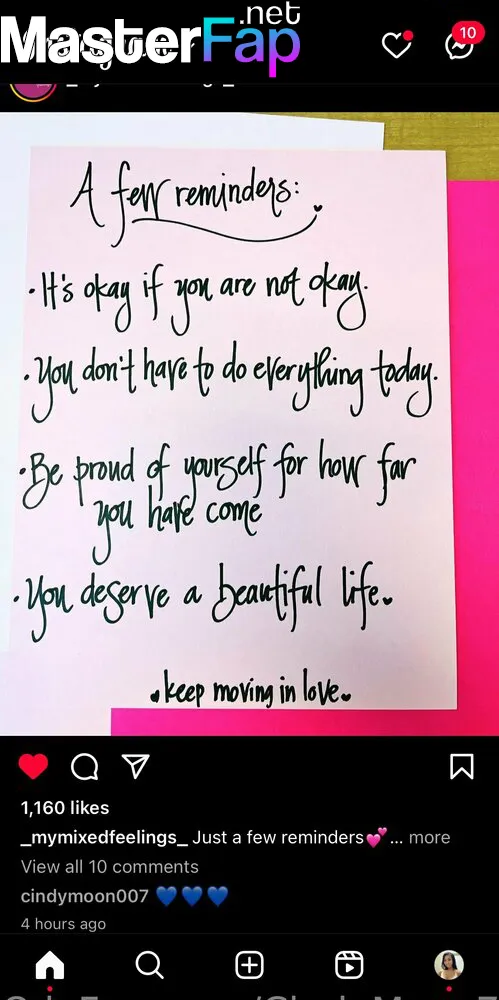 .net
MasterFap
10
A few reminders:
· It's okay if you are not okay.
· You don't have to do everything today.
· Be proud of yourself for how far
you have come
· You deserve a beautiful life.
keep moving in love
1,160 likes
_mymixedfeelings_ Just a few reminders💕... more
View all 10 comments
cindymoon007 💙💙💙
4 hours ago